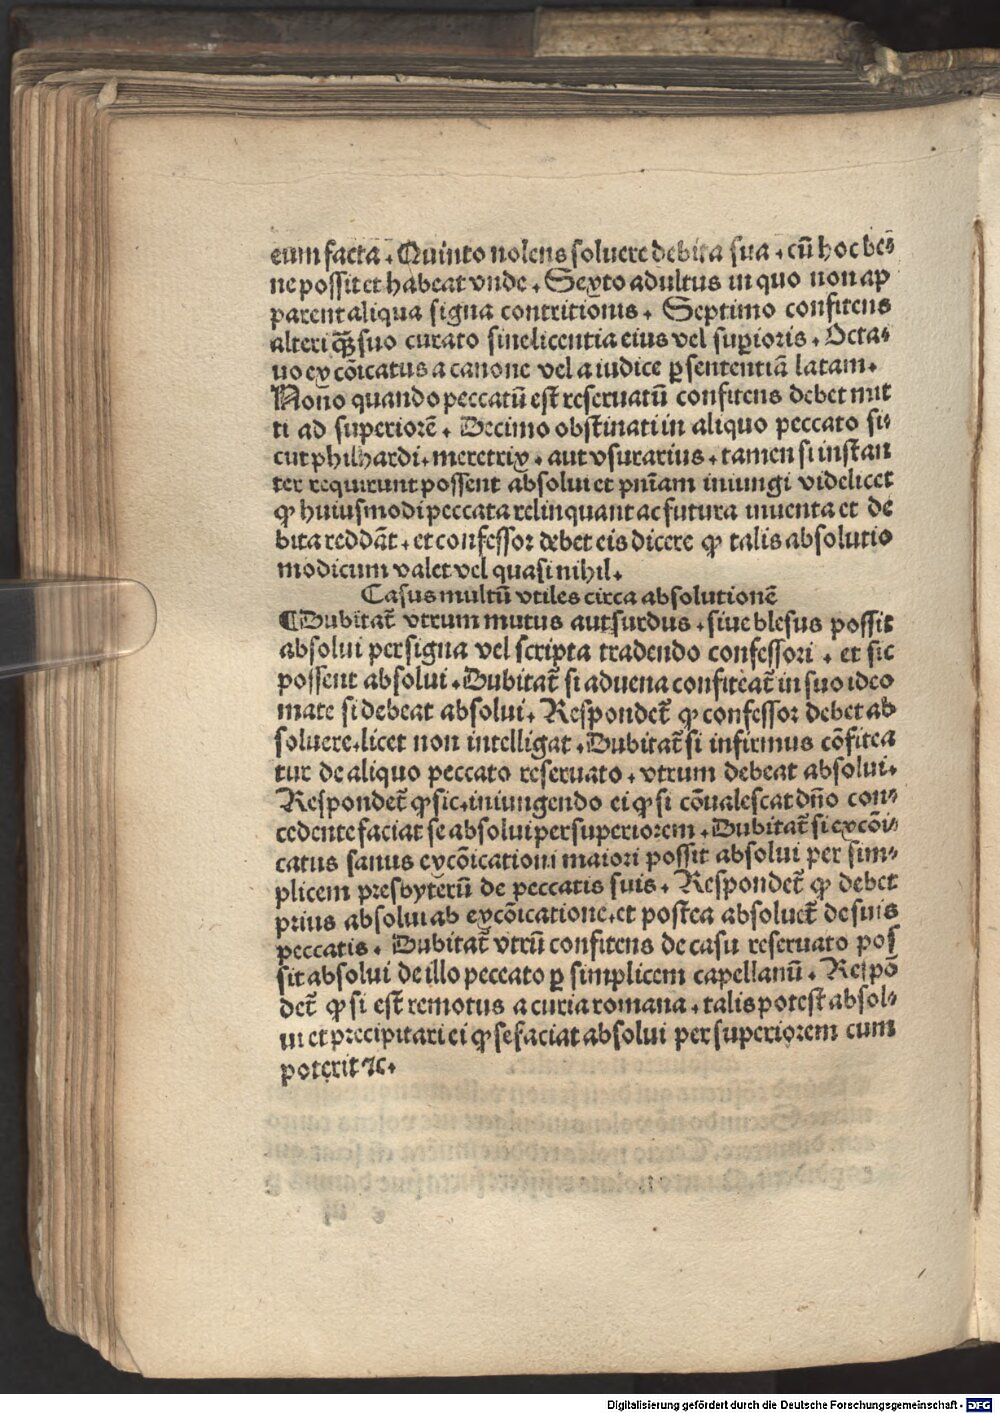 eum facta . Quinto nolens soluere debita sua . cū hoc be⸗
ne possit et habeat vnde . Sexto adultus in quo non ap
parent aliqua signa contritionis . Septimo confitens
alteri qꝫ suo curato sine licentia eius vel suꝑioris . Octa⸗
uo excōicatus a canone vel a iudice ꝑ sententiā latam .
Nono quando peccatū est reseruatū confitens debet mit
ti ad superiorē . Decimo obstinati in aliquo peccato si⸗
cut philhardi . meretrix . aut vsurarius . tamen si instan
ter requirunt possent absolui et pn̄iam iniungi videlicet
ꝙ huiusmodi peccata relinquant ac futura inuenta et de
bita reddāt . et confessor debet eis dicere ꝙ talis absolutio
modicum valet vel quasi nihil .
Casus multū vtiles circa absolutionē
¶Dubitat̄ vtrum mutus aut surdus . siue blesus possit
absolui per signa vel scripta tradendo confessori . et sic
possent absolui . Dubitat̄ si aduena confiteat̄ in suo ideo
mate si debeat absolui . Respondet̄ ꝙ confessor debet ab
soluere . licet non intelligat . Dubitat̄ si infirmus cōfitea
tur de aliquo peccato reseruato . vtrum debeat absolui .
Respondet̄ ꝙ sic . iniungendo ei ꝙ si cōualescat dn̄o con⸗
cedente faciat se absolui per superiorem . Dubitat̄ si excōi⸗
catus sanus excōicationi maiori possit absolui per sim⸗
plicem presbyterū de peccatis suis . Respondet̄ ꝙ debet
prius absolui ab excōicatione . et postea absoluet̄ de suis
peccatis . Dubitat̄ vtrū confitens de casu reseruato pos
sit absolui de illo peccato ꝑ simplicem capellanū . Respō
det̄ ꝙ si est remotus a curia romana . talis potest absol⸗
ui et precipitari ei ꝙ se faciat absolui per superiorem cum
poterit ⁊c .
Digitalisierung gefördert durch die Deutsche Forschungsgemeinschaft - DFG